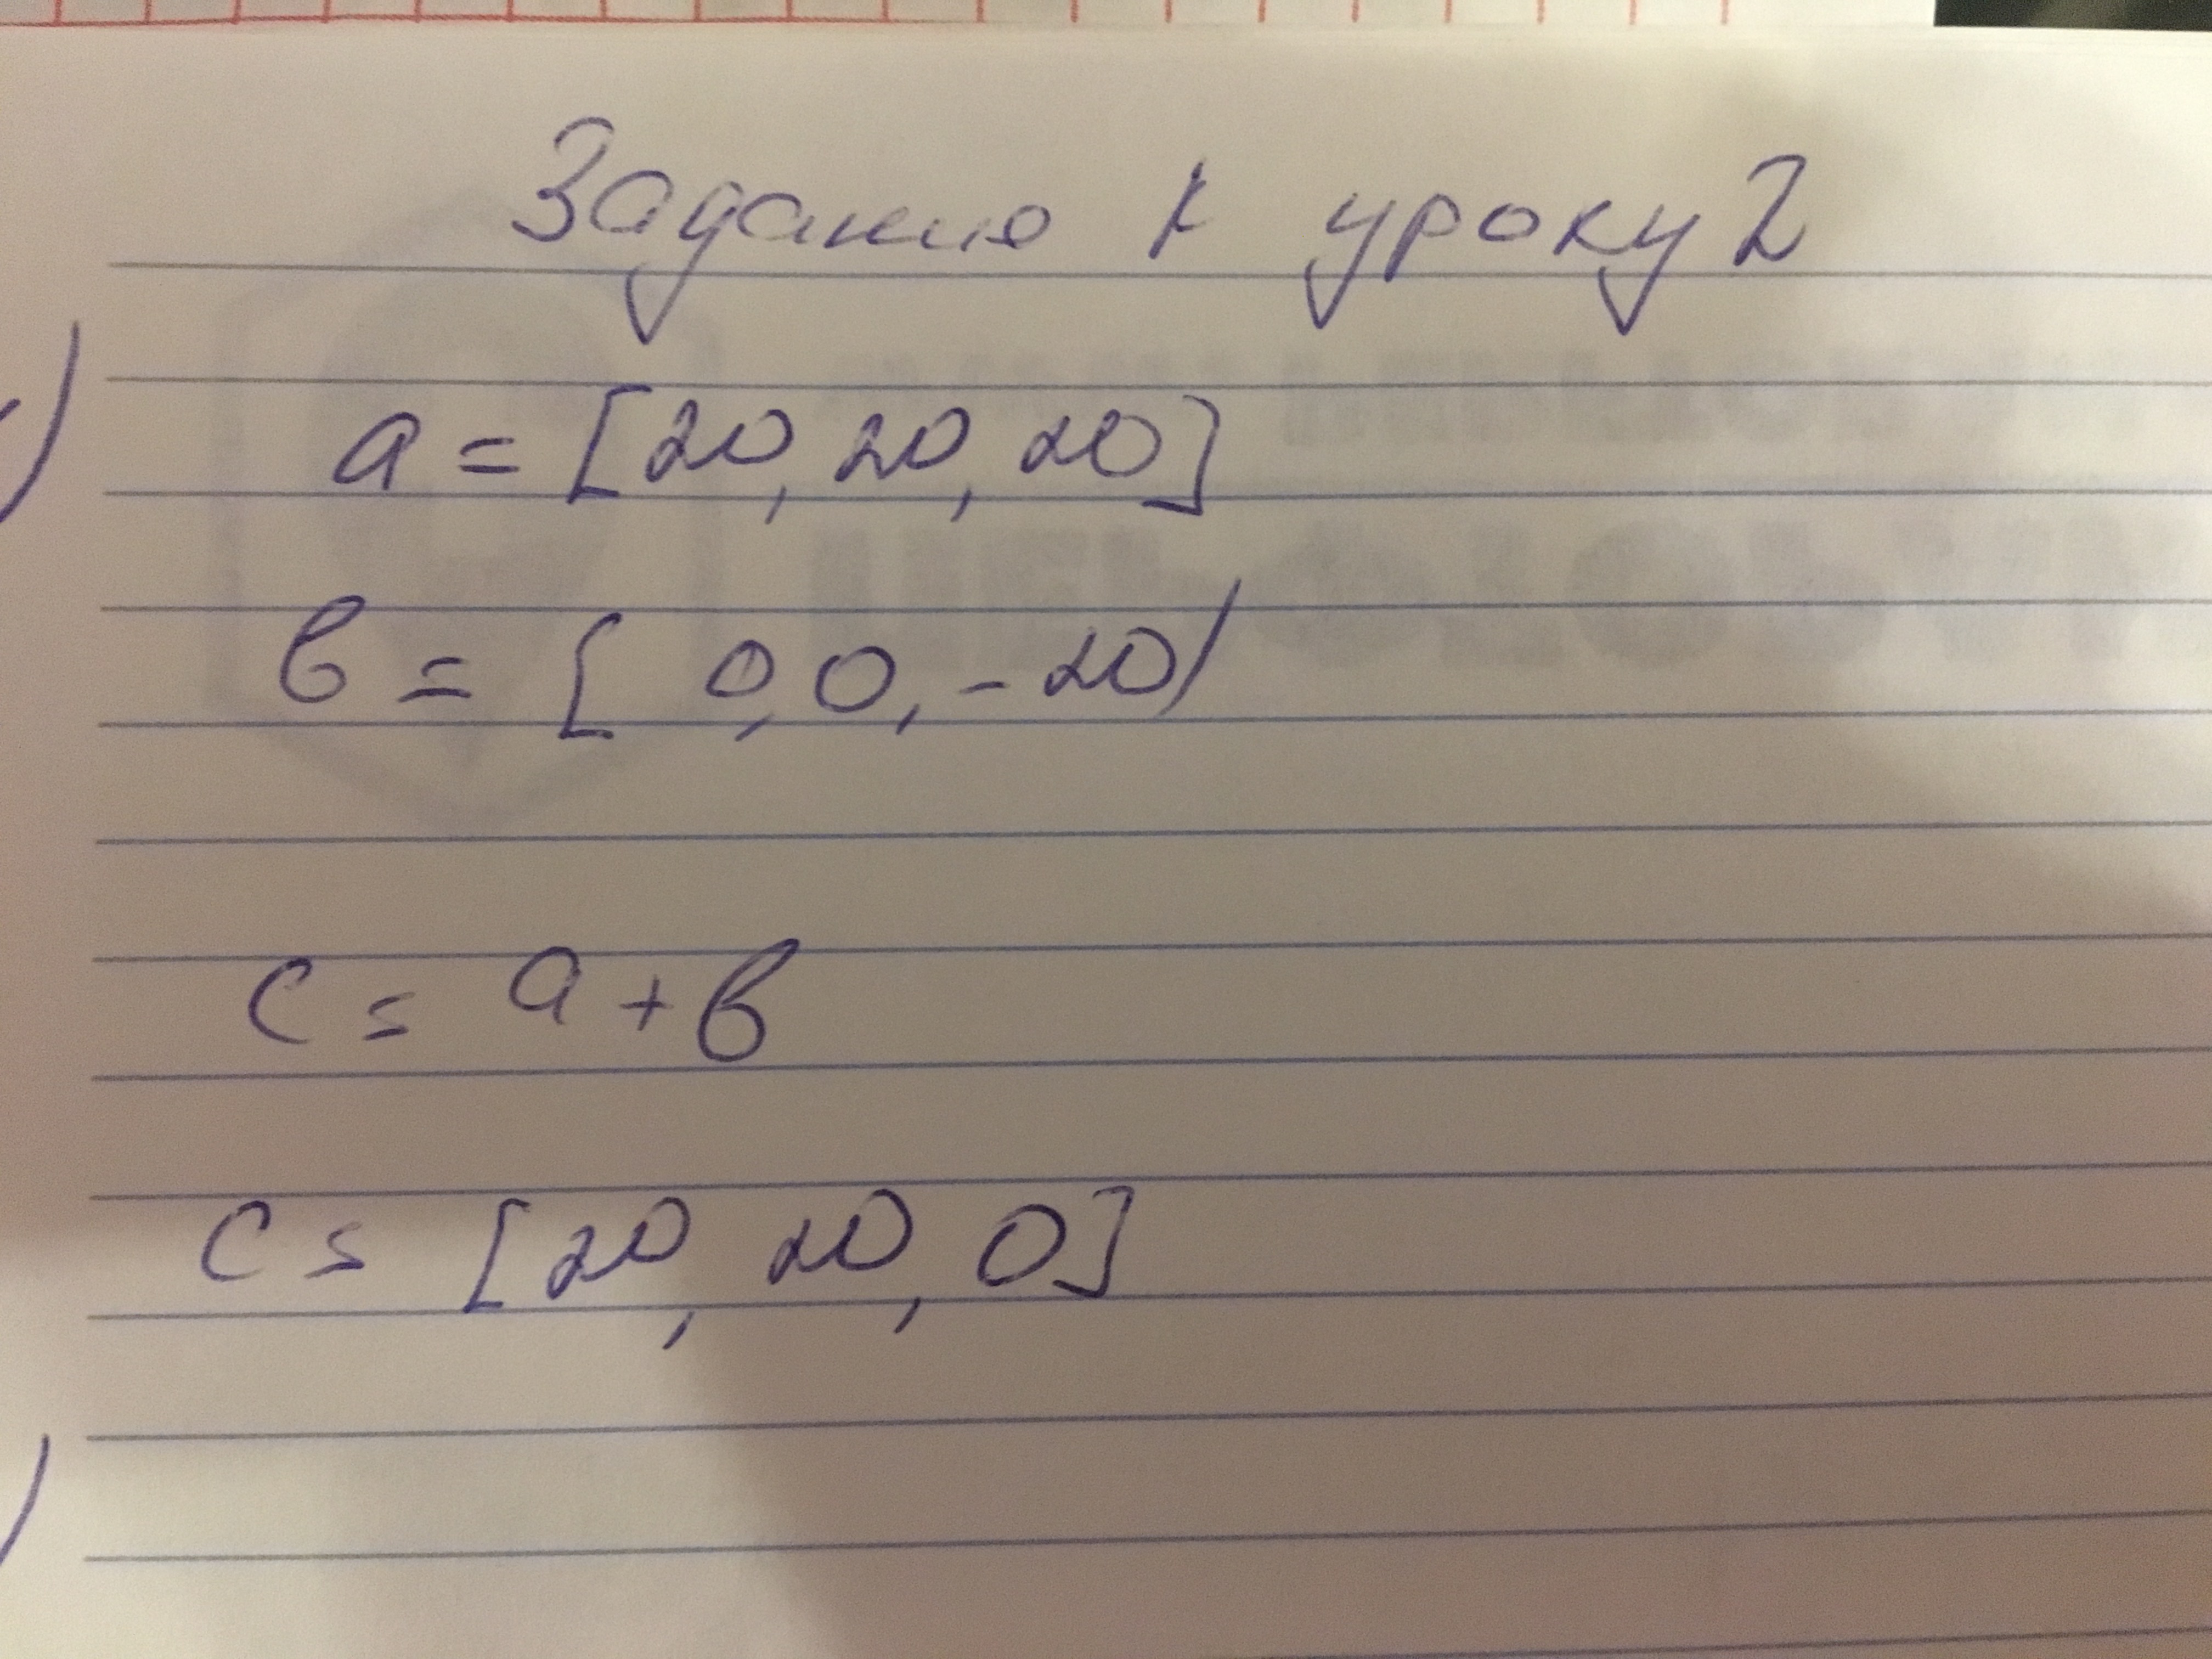 Задание к уроку 2
) a = [20, 20, 20]
в = [ 0, 0, - 20)
c = a + в
c = [20, 20, 0]
)